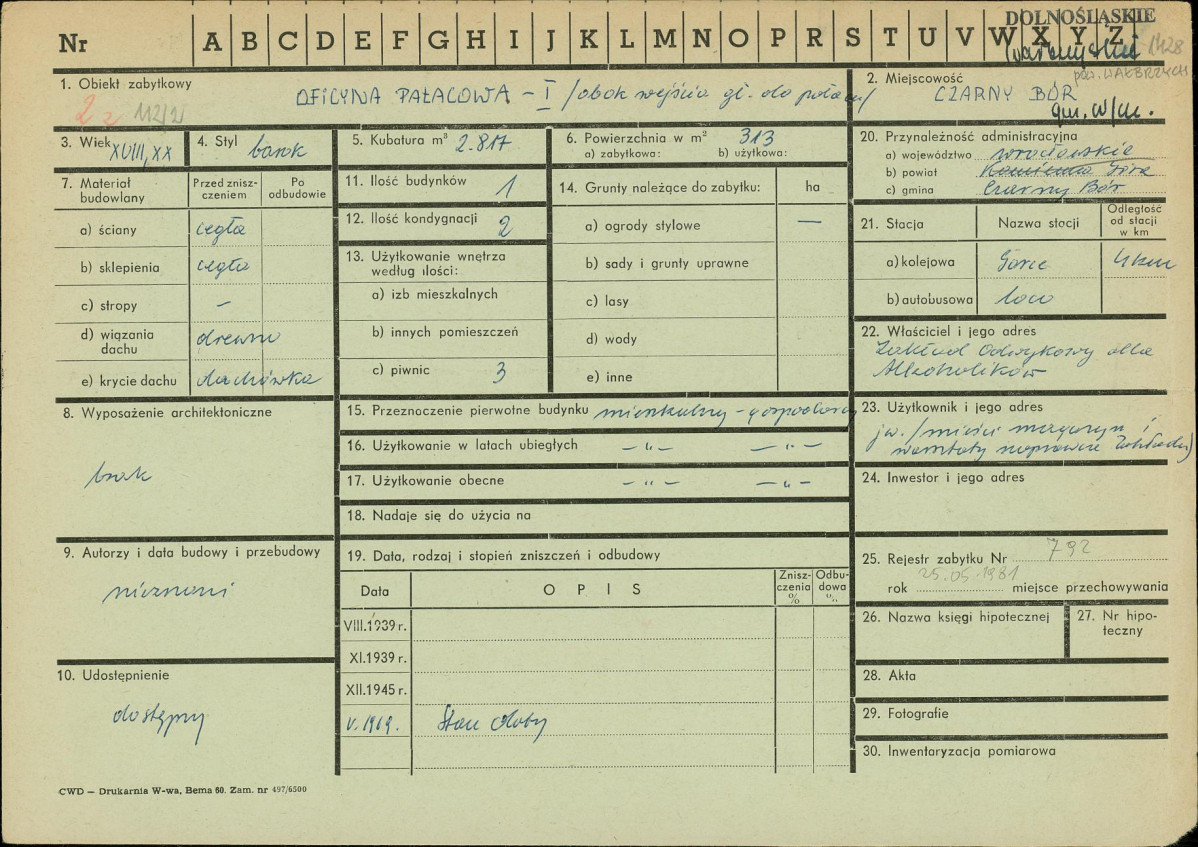 DOLNOŚLĄSKIE
Nr A B C D E F G H I J K L M N O P R S T U V W X Y Z
1428
pow. WAŁBRZYCH
1. Obiekt zabytkowy
OFICYNA PAŁACOWA – I /obok wejścia gł. do pałacu/
112/2
2. Miejscowość
CZARNY BÓR
gm. w/m.
3. Wiek XVIII, XX
4. Styl barok
5. Kubatura m³ 2.817
6. Powierzchnia w m² 313
a) zabytkowa: b) użytkowa:
20. Przynależność administracyjna
a) województwo wrocławskie
b) powiat Kamienna Góra
c) gmina Czarny Bór
7. Materiał budowlany
Przed znisz-
czeniem
Po
odbudowie
a) ściany cegła
b) sklepienia cegła
c) stropy –
d) wiązania
dachu drewno
e) krycie dachu dachówka
11. Ilość budynków 1
12. Ilość kondygnacji 2
13. Użytkowanie wnętrza
według ilości:
a) izb mieszkalnych
b) innych pomieszczeń
c) piwnic 3
14. Grunty należące do zabytku: ha
a) ogrody stylowe —
b) sady i grunty uprawne
c) lasy
d) wody
e) inne
21. Stacja Nazwa stacji
Odległość
od stacji
w km
a) kolejowa 4 km
b) autobusowa loco
22. Właściciel i jego adres
Zakład Odwykowy dla
Alkoholików
8. Wyposażenie architektoniczne
brak
15. Przeznaczenie pierwotne budynku mieszkalny - gospodarczy
16. Użytkowanie w latach ubiegłych – " – – " –
17. Użytkowanie obecne – " – – " –
18. Nadaje się do użycia na
23. Użytkownik i jego adres
jw. /mieści magazyn i
warsztaty naprawcze Zakładu/
24. Inwestor i jego adres
9. Autorzy i data budowy i przebudowy
nieznani
19. Data, rodzaj i stopień zniszczeń i odbudowy
Data O P I S
Znisz-
czenia
%
Odbu-
dowa
%
VIII.1939 r.
XI.1939 r.
XII.1945 r.
V. 1969. Stan dobry
25. Rejestr zabytku Nr 792
rok 25.05.1981 miejsce przechowywania
26. Nazwa księgi hipotecznej
27. Nr hipo-
teczny
10. Udostępnienie
dostępny
28. Akta
29. Fotografie
30. Inwentaryzacja pomiarowa
CWD — Drukarnia W-wa, Bema 60. Zam. nr 497/6500